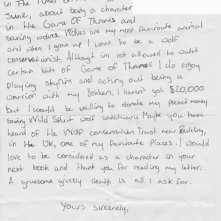 in The Times on
June, about being a character
in the Game Of Thrones and
saving wolves. Wolves are my most favourite animal
and when I grow up I want to be a wolf
conservationist. Although im not allowed to watch
certain bits of Game of Thrones I do enjoy
Playing skyrim and acting out being a
warrior with my bokken. I haven't got $20,000
but I would be willing to donate my pocket money
saving Wild Spirit wolf sanctuary. Maybe you have
heard of the Wolf conservation Trust near Reading,
in the UK, one of my favourite Places. I would
love to be considered as a character in your
next book and thank you for reading my letter.
A gruesome grisly death is all I ask for.
Yours sincerely,